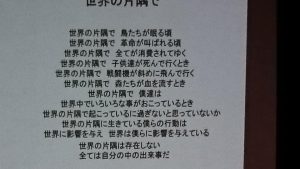 世界の片隅で
世界の片隅で 鳥たちが眠る頃
世界の片隅で 革命が叫ばれる頃
世界の片隅で 全てが消費されてゆく
世界の片隅で 子供達が死んで行くとき
世界の片隅で 戦闘機が斜めに飛んで行く
世界の片隅で 森たちが血を流すとき
世界の片隅で 僕達は
世界中でいろいろな事がおこっているとき
世界の片隅で起こっているに過ぎないと思っていないか
世界の片隅に生きている僕らの行動は
世界に影響を与え 世界は僕らに影響を与えている
世界の片隅は存在しない
全ては自分の中の出来事だ